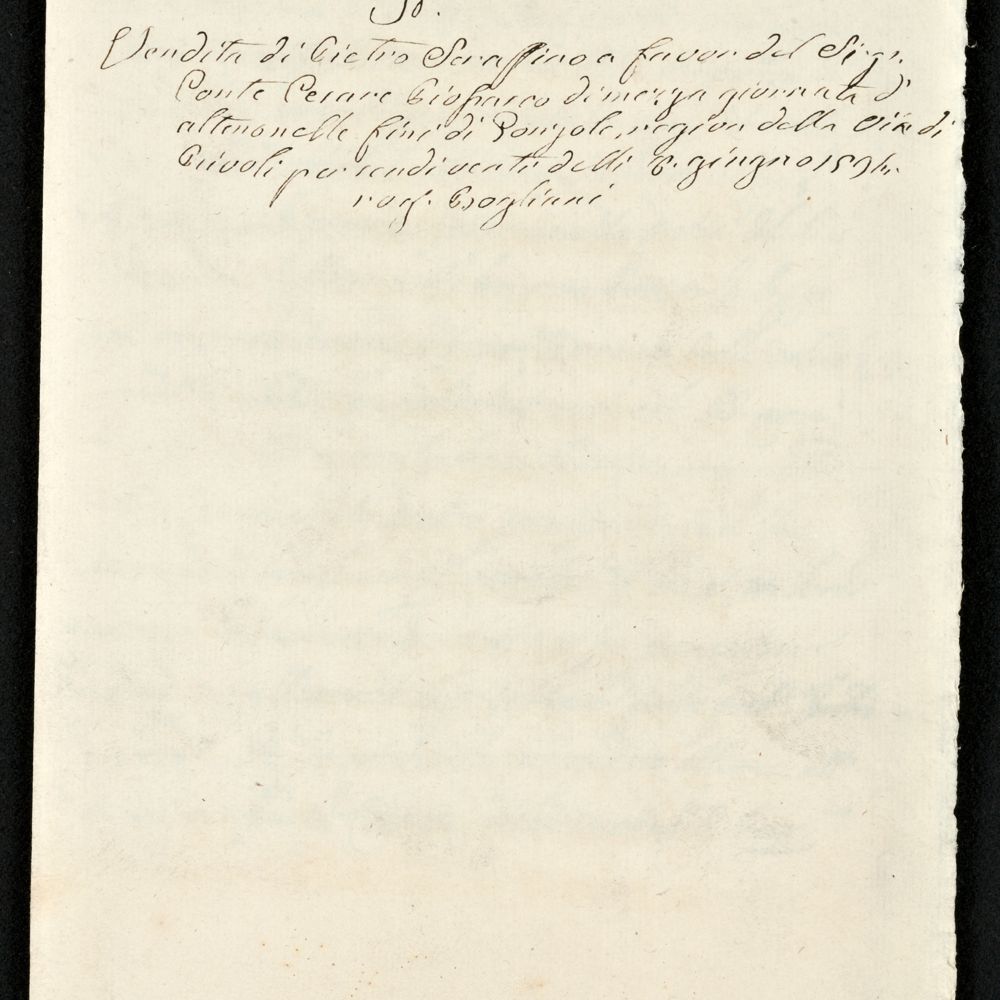 Vendita di Pietro Seraffino a favor del Sigr.
Conte Cesare Gioffredo di mezza giornata d'
alteno nelle fini di region della via di
Rivoli per scudi venti delli 8. giugno 1594.
rog. Grogliani